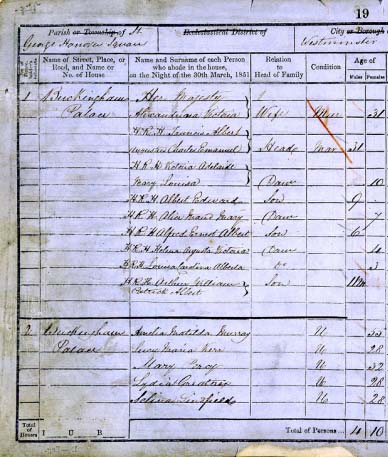 19
Parish or Township of St. George Hanover Square
Ecclesiastical District of
City or Borough of Westminster
Name of Street, Place, or Road, and Name or No. of House
Name and Surname of each Person who abode in the house, on the Night of the 30th March, 1851
Relation to Head of Family
Condition
Age of
Males Females
1 Buckingham Palace
Her Majesty
Alexandrina Victoria Wife Mar 31
H R H Francis Albert
Augustus Charles Emanuel Head Mar 31
H R H Victoria Adelaide
Mary Louisa Daur 10
H R H Albert Edward Son 9
H R H Alice Maud Mary Daur 7
H R H Alfred Ernest Albert Son 6
H R H Helena Augusta Victoria Daur 4
H R H Louisa Carolina Alberta Do 3
H R H Arthur William
Patrick Albert Son 11 Mo
2 Buckingham Palace
Amelia Matilda Murray U
Maria U 28
Mary U 32
Lydia U 28
Selina U 28
Total of Houses I U B
Total of Persons 4 10